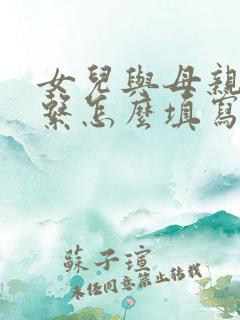 女兒與母親
繫怎麼填寫
蘇子瑄
未任同意禁止轉載